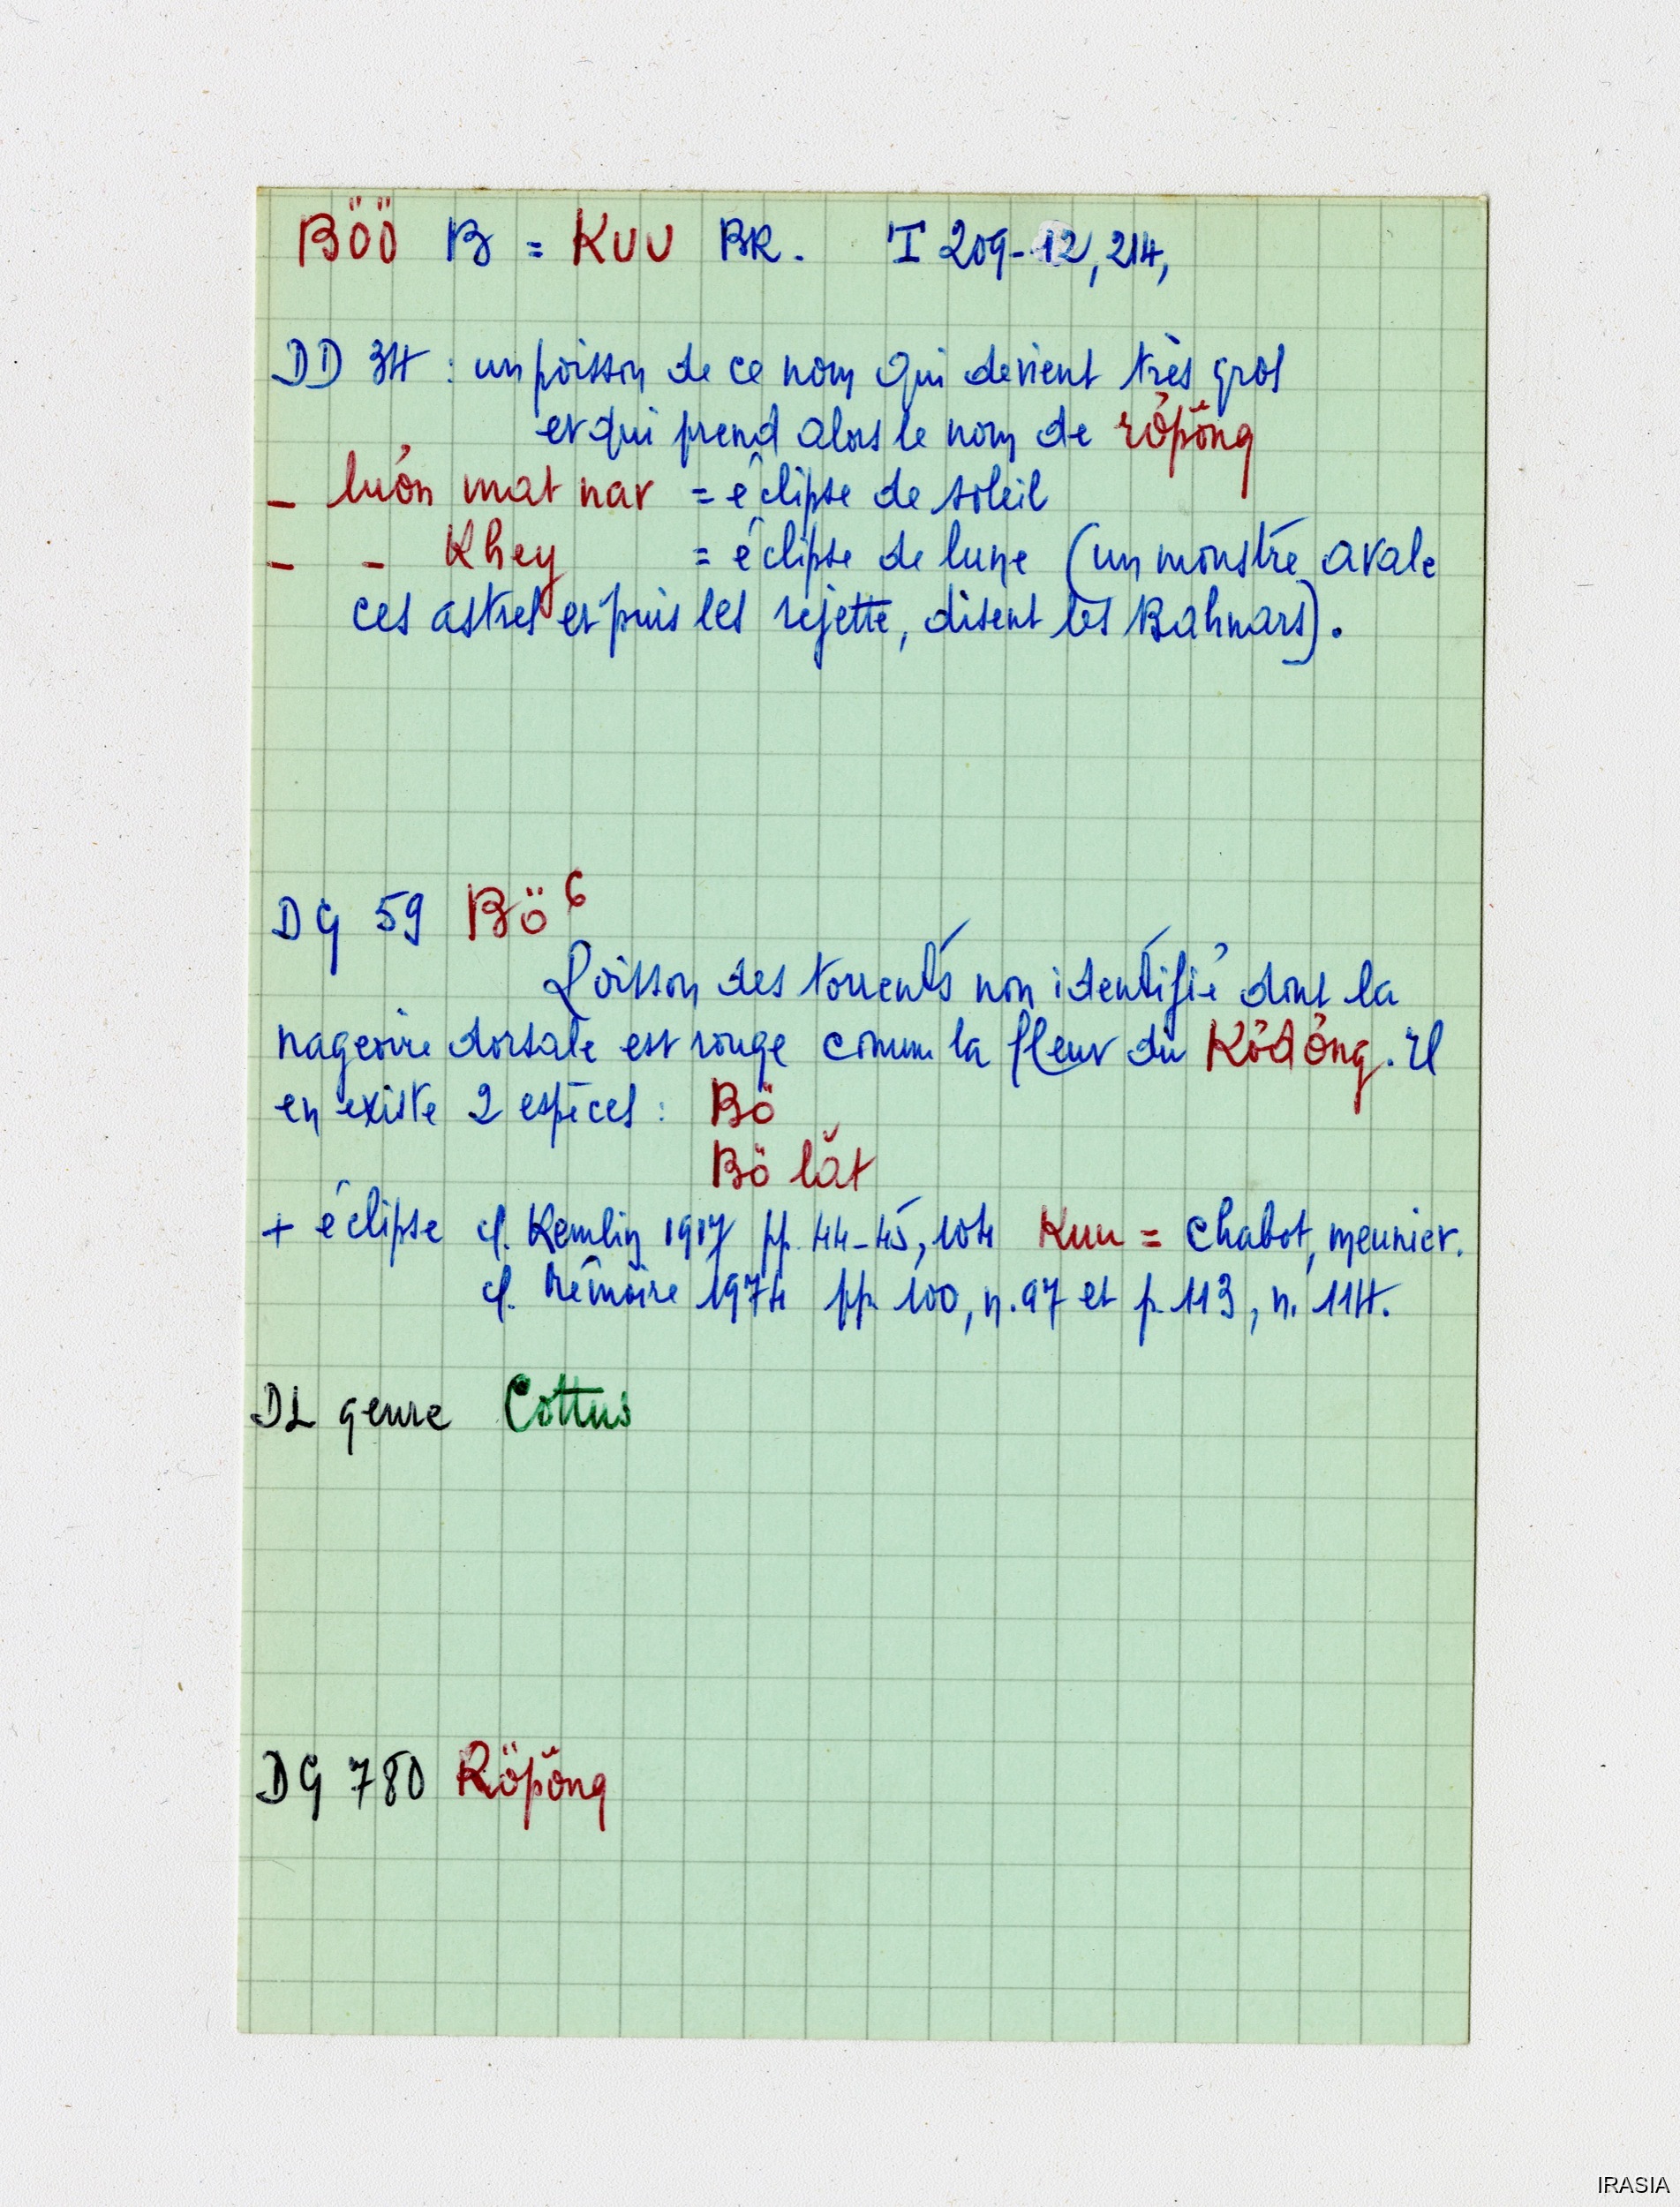 BÖÖ B = KUU BR. I 209-12, 214,
DD 34 : un poisson de ce nom qui devient très gros
et qui prend alors le nom de rơpŏ́ng
_ luơn mat nar = éclipse de soleil
_ _ Khey = éclipse de lune (un monstre avale
ces astres et puis les rejette, disent les Bahnars).
DG 59 Bö 6
Poisson des torrents non identifié dont la
nageoire dorsale est rouge comme la fleur du Kơdơng. Il
en existe 2 espèces : Bö
Bö lăt
+ éclipse cf. Kemlin 1917 pp. 44-45, 104 Kuu = chabot, meunier.
cf. Mémoire 1974 pp. 100, n. 97 et p. 113, n. 114.
DL genre Cottus
DG 780 Röpŏ́ng
IRASIA